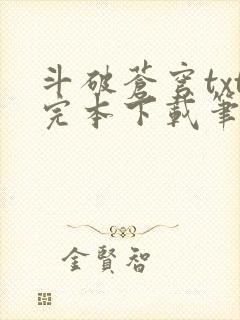 斗破蒼穹txt
完本下載筆
金賢智